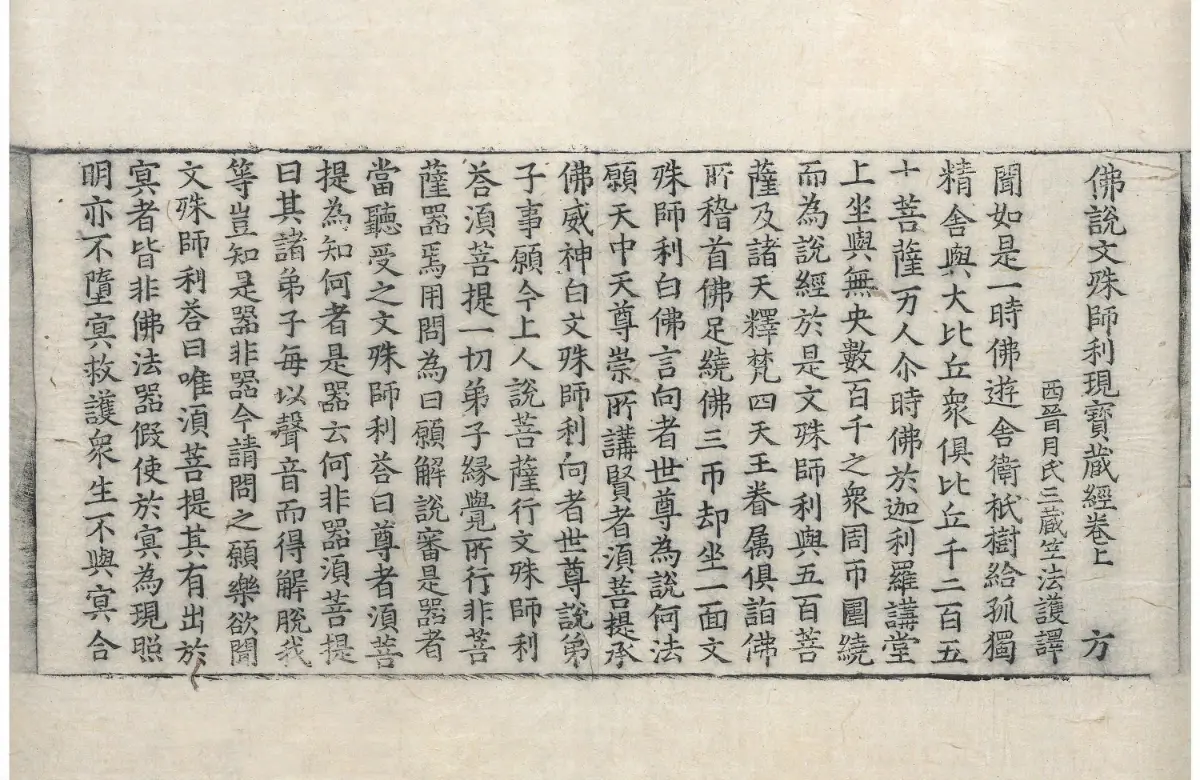 佛說文殊師利現寶蔵經卷上 方
西晉月氏三蔵竺法護譯
聞如是一時佛遊舍衛祇樹給孤獨
精舍與大比丘衆俱比丘千二百五
十菩薩万人尒時佛於迦利羅講堂
上坐與無央數百千之衆周帀圍繞
而為說經於是文殊師利與五百菩
薩及諸天釋梵四天王眷属俱詣佛
所稽首佛足繞佛三帀却坐一面文
殊師利白佛言向者世尊為說何法
願天中天尊崇所講賢者湏菩提承
佛威神白文殊師利向者世尊說弟
子事願今上人說菩薩行文殊師利
荅湏菩提一切弟子緣覺所行非菩
薩器焉用問為曰願解說審是器者
當聽受之文殊師利荅曰尊者湏菩
提為知何者是器云何非器湏菩提
曰其諸弟子每以聲音而得解脫我
等豈知是器非器今請問之願樂欲聞
文殊師利荅曰唯湏菩提其有出於
冥者皆非佛法器假使於冥為現照
明亦不墮冥救護衆生不與冥合